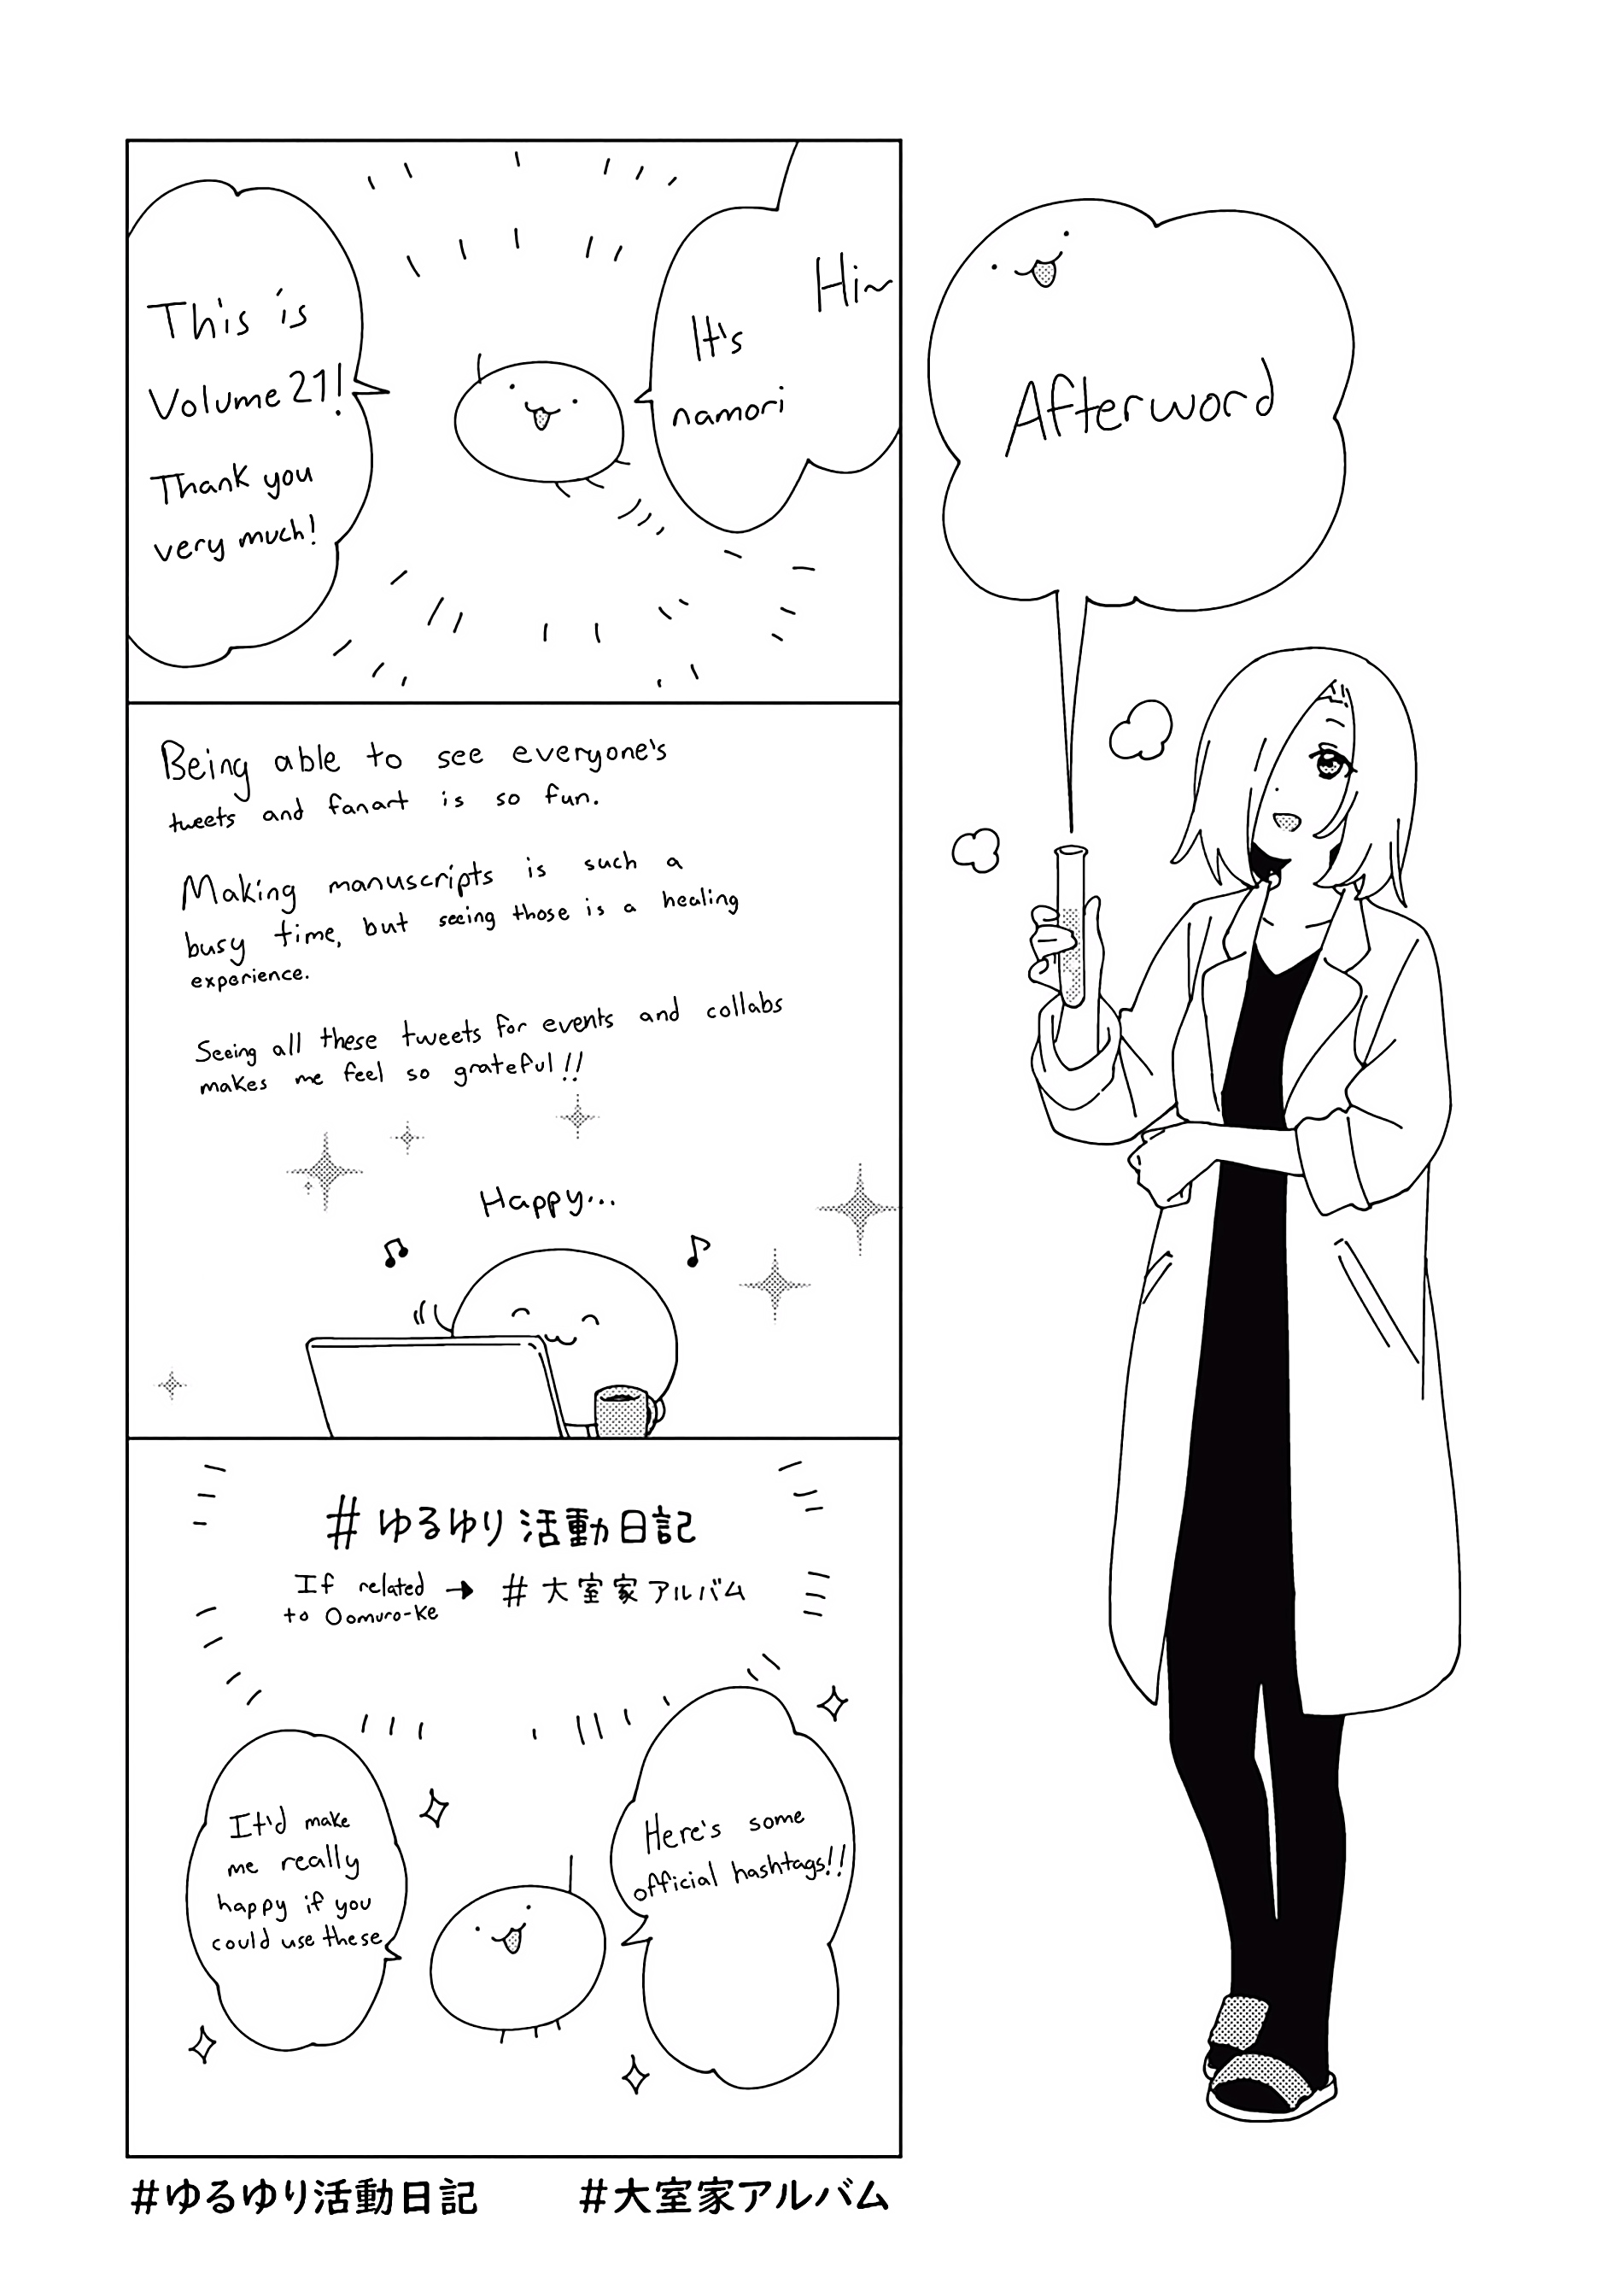 Afterword
Hi~
It's
namori
This is
Volume 21!
Thank you
very much!
Being able to see everyone's
tweets and fanart is so fun.
Making manuscripts is such a
busy time, but seeing those is a healing
experience.
Seeing all these tweets for events and collabs
makes me feel so grateful!!
Happy...
#ゆるゆり活動日記
If related
to Oomuro-Ke
→ #大室家アルバム
Here's some
official hashtags!!
It'd make
me really
happy if you
could use these
#ゆるゆり活動日記
#大室家アルバム